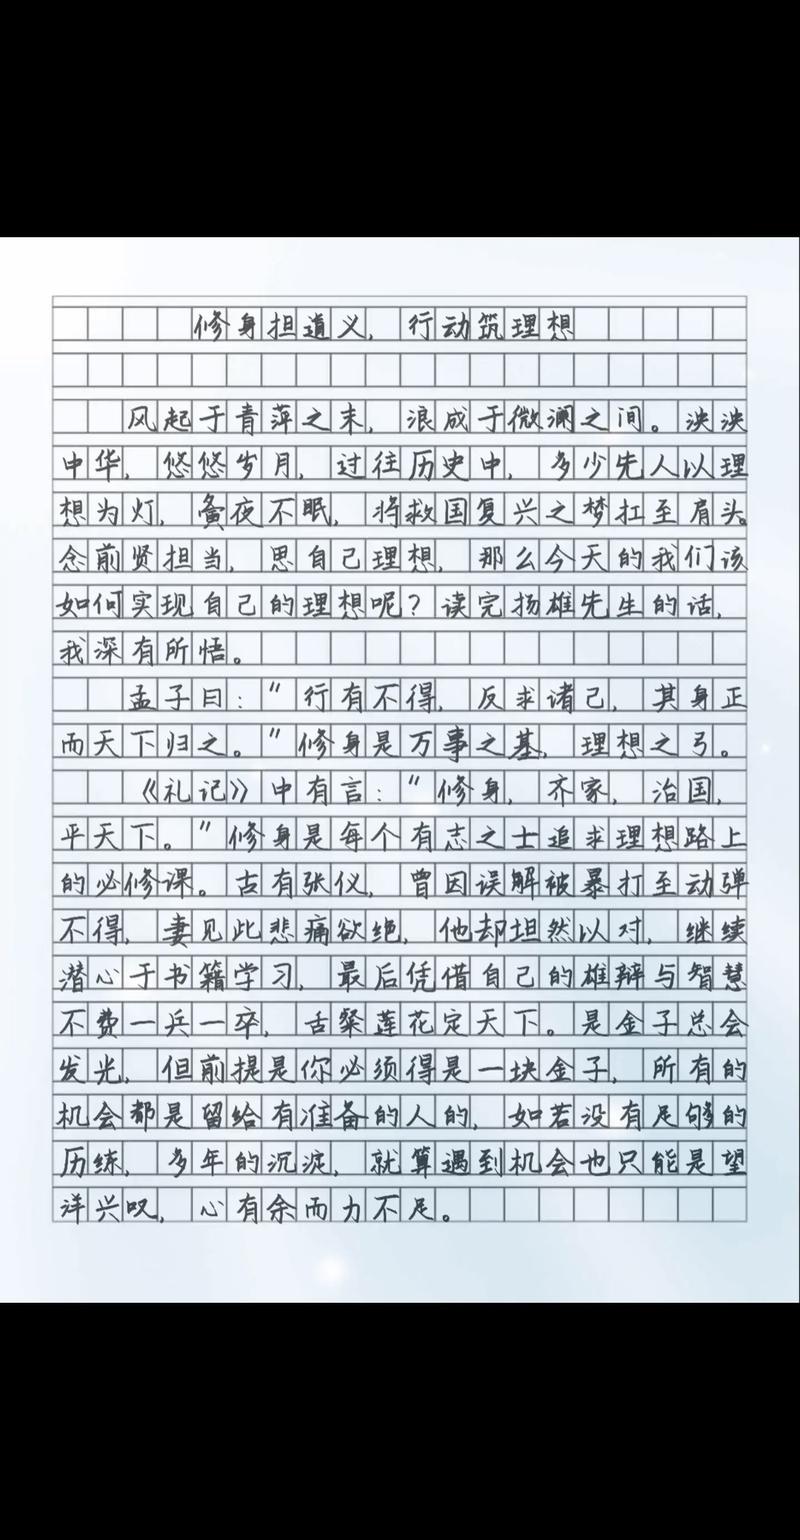 修身担道义，行动筑理想
风起于青萍之末，浪成于微澜之间。泱泱
中华，悠悠岁月，过往历史中，多少先人以理
想为灯，夤夜不眠，将救国复兴之梦扛至肩头。
念前贤担当，思自己理想，那么今天的我们该
如何实现自己的理想呢？读完扬雄先生的话，
我深有所悟。
孟子曰：“行有不得，反求诸己，其身正
而天下归之。”修身是万事之基，理想之弓。
《礼记》中有言：“修身，齐家，治国，
平天下。”修身是每个有志之士追求理想路上
的必修课。古有张仪，曾因误解被暴打至动弹
不得，妻见此悲痛欲绝，他却坦然以对，继续
潜心于书籍学习，最后凭借自己的雄辩与智慧
不费一兵一卒，舌粲莲花定天下。是金子总会
发光，但前提是你必须得是一块金子，所有的
机会都是留给有准备的人的，如若没有足够的
历练，多年的沉淀，就算遇到机会也只能是望
洋兴叹，心有余而力不足。